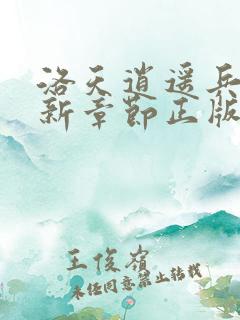 洛天逍遥兵
新章节正版
王俊岭
未经同意禁止转载